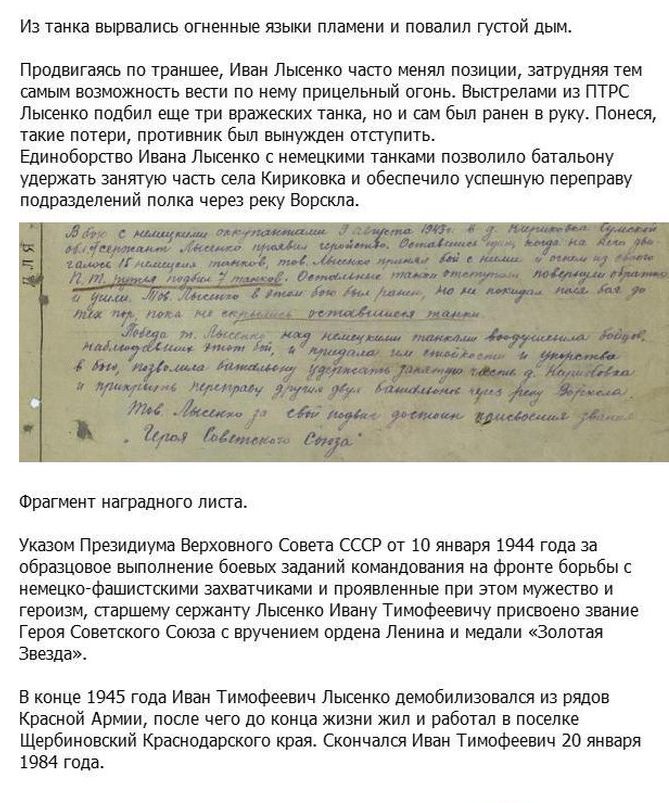 Из танка вырвались огненные языки пламени и повалил густой дым.
Продвигаясь по траншее, Иван Лысенко часто менял позиции, затрудняя тем
самым возможность вести по нему прицельный огонь. Выстрелами из ПТРС
Лысенко подбил еще три вражеских танка, но и сам был ранен в руку. Понеся,
такие потери, противник был вынужден отступить.
Единоборство Ивана Лысенко с немецкими танками позволило батальону
удержать занятую часть села Кириковка и обеспечило успешную переправу
подразделений полка через реку Ворскла.
В бою с немецкими оккупантами 9 августа 1943г. в д. Кириковка Сумской
обл. сержант Лысенко проявил геройство. Оставшись один, когда на него дви-
галось 15 немецких танков, тов. Лысенко принял бой с ними и огнем из своего
П.Т. ружья подбил 7 танков. Остальные танки отступили повернули обратно
и ушли. Тов. Лысенко в этом бою был ранен, но не покидал поля боя до
тех пор, пока не скрылись оставшиеся танки.
Победа т. Лысенко над немецкими танками воодушевила бойцов,
наблюдавших этот бой, и придала им стойкости и упорства
в бою, позволила батальону удержать занятую часть д. Кириковка
и прикрыть переправу других двух батальонов через реку Ворскла.
Тов. Лысенко за свой подвиг достоин присвоения звания
"Героя Советского Союза"
Фрагмент наградного листа.
Указом Президиума Верховного Совета СССР от 10 января 1944 года за
образцовое выполнение боевых заданий командования на фронте борьбы с
немецко-фашистскими захватчиками и проявленные при этом мужество и
героизм, старшему сержанту Лысенко Ивану Тимофеевичу присвоено звание
Героя Советского Союза с вручением ордена Ленина и медали «Золотая
Звезда».
В конце 1945 года Иван Тимофеевич Лысенко демобилизовался из рядов
Красной Армии, после чего до конца жизни жил и работал в поселке
Щербиновский Краснодарского края. Скончался Иван Тимофеевич 20 января
1984 года.